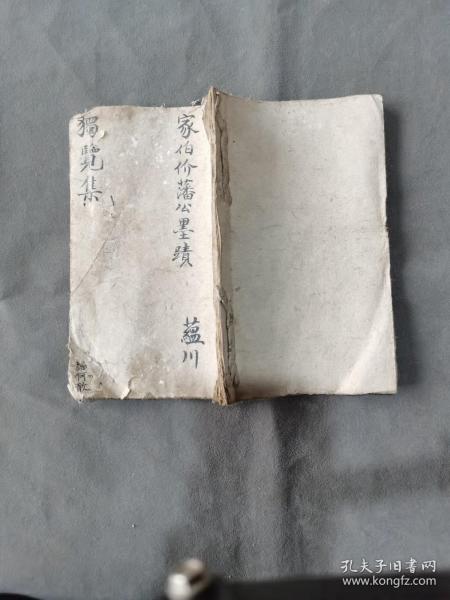 家伯价藩公墨蹟 蘊川
獨覽集
孔夫子旧书网
www.kongfz.com